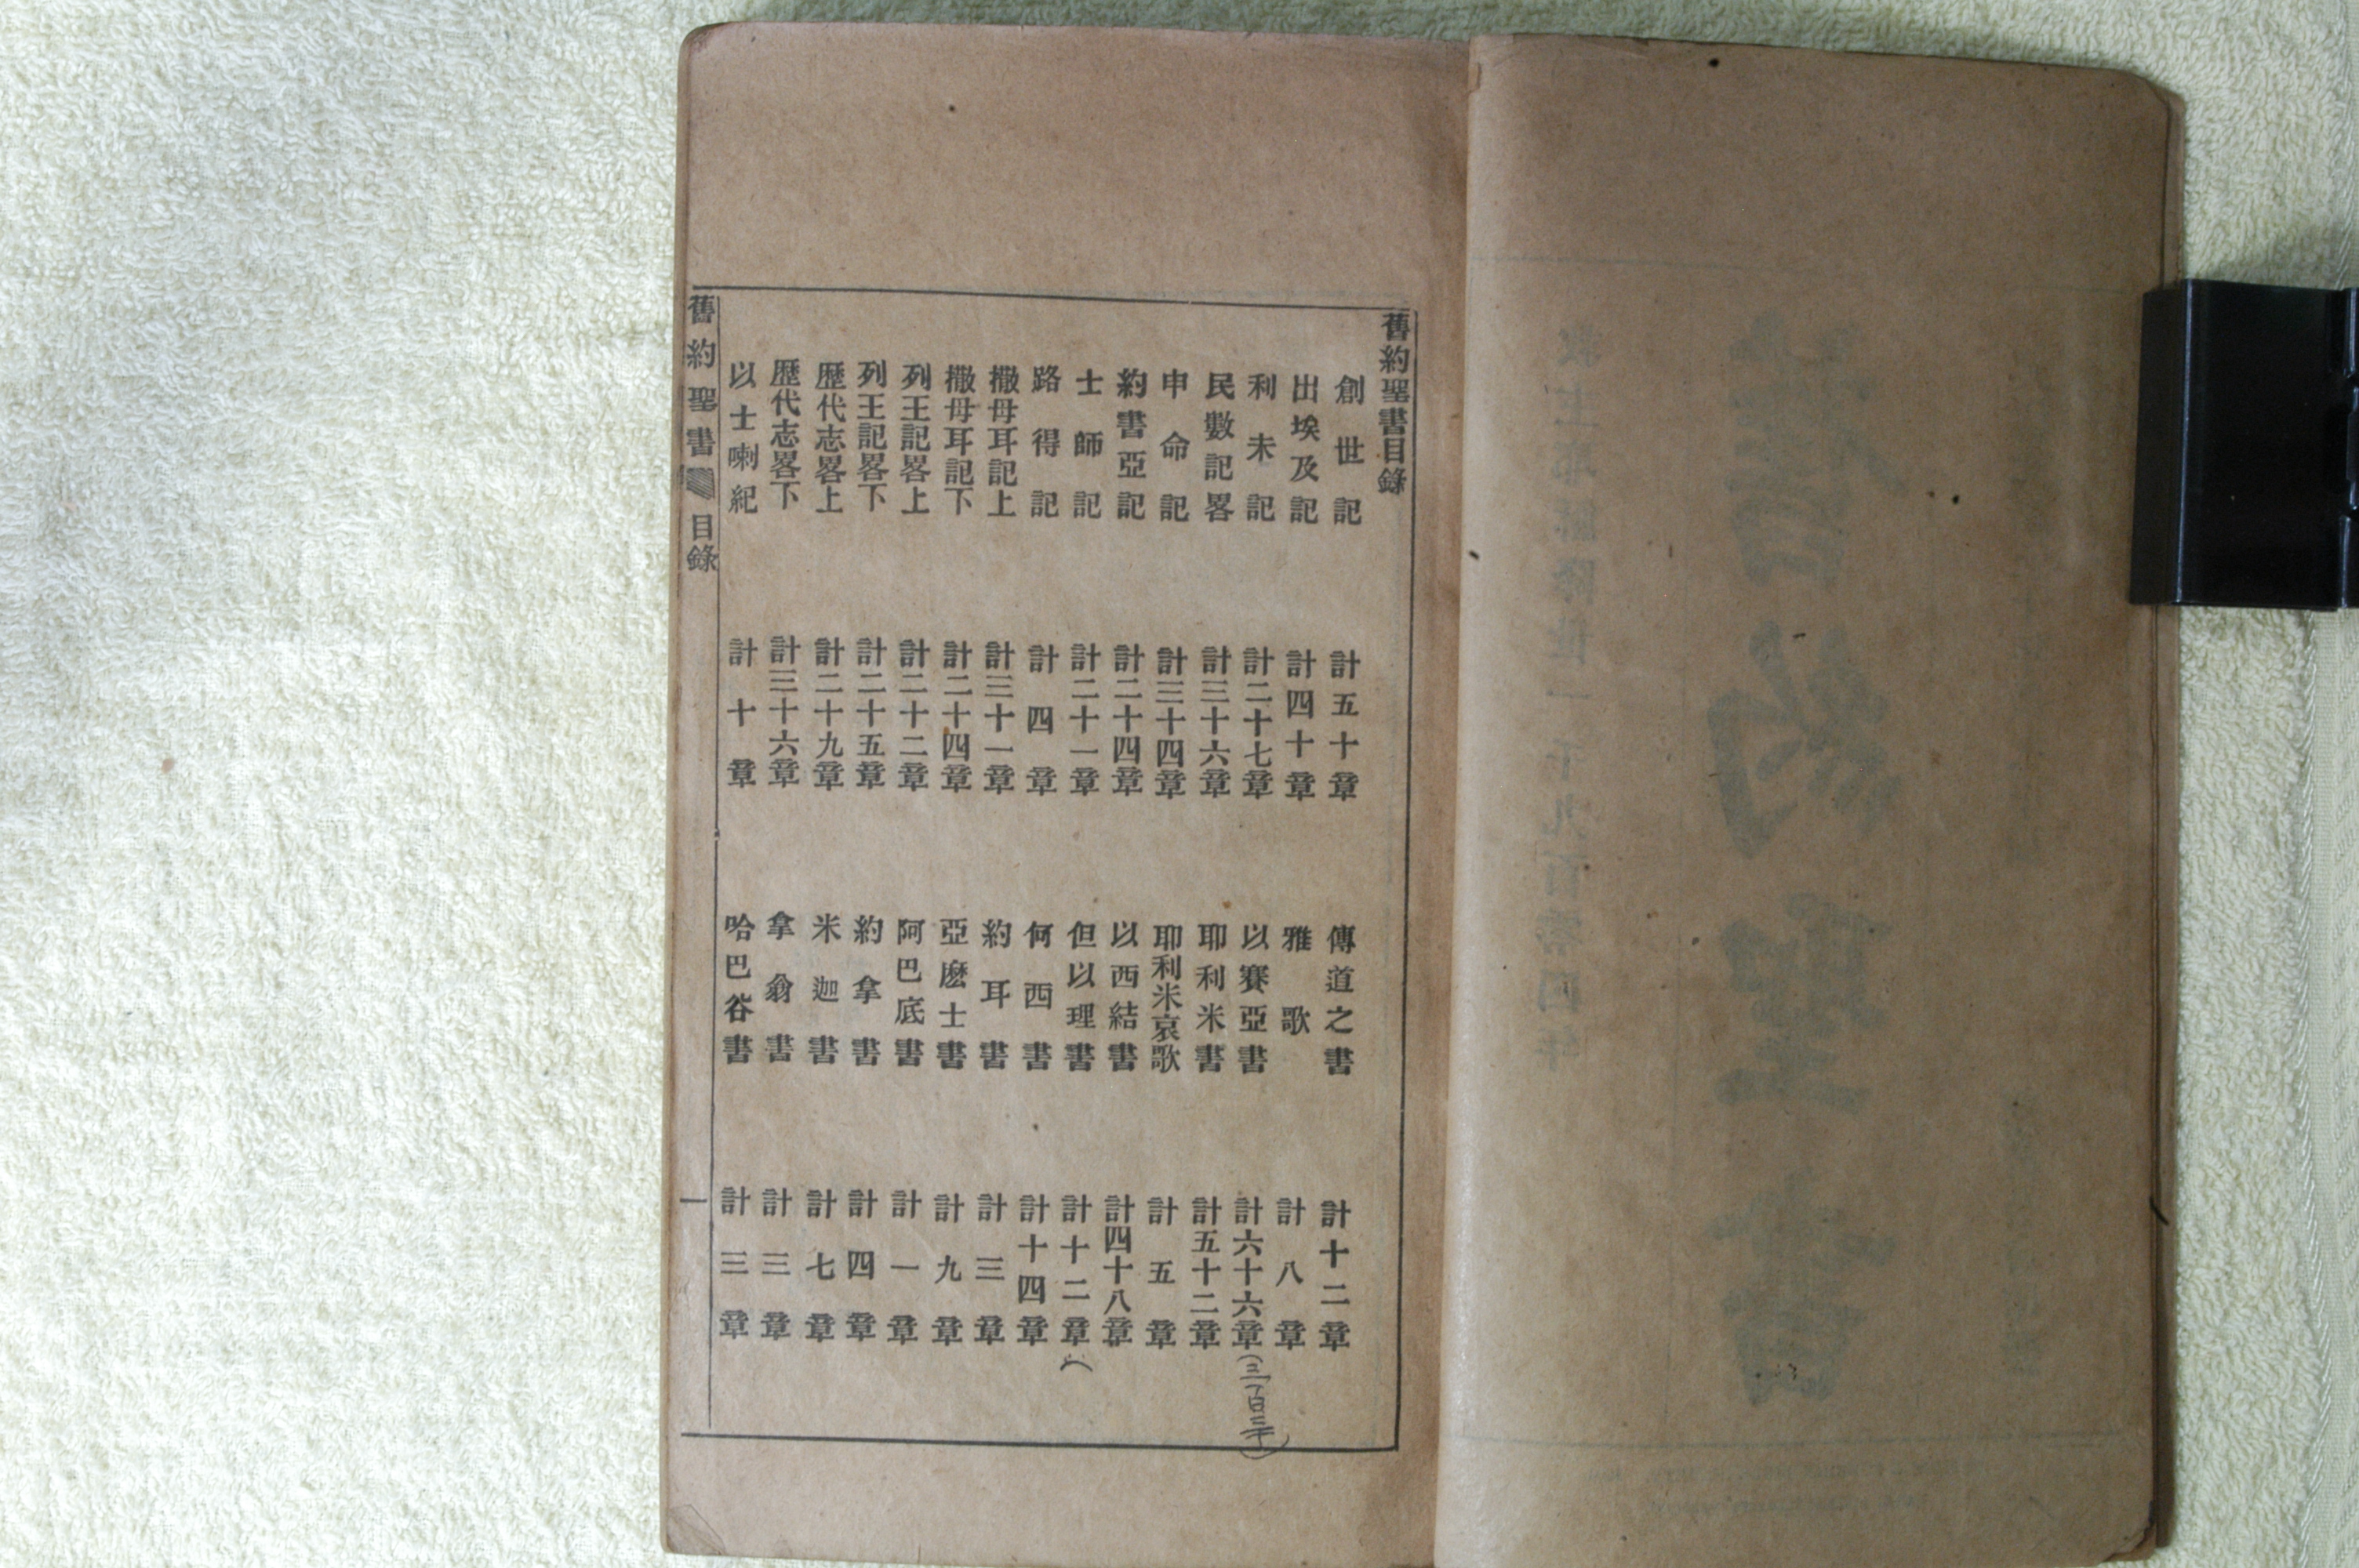 舊約聖書目錄
創世記 計五十章
出埃及記 計四十章
利未記 計二十七章
民數記畧 計三十六章
申命記 計三十四章
約書亞記 計二十四章
士師記 計二十一章
路得記 計四章
撒母耳記上 計三十一章
撒母耳記下 計二十四章
列王記畧上 計二十二章
列王記畧下 計二十五章
歷代志畧上 計二十九章
歷代志畧下 計三十六章
以士喇紀 計十章
傳道之書 計十二章
雅歌 計八章
以賽亞書 計六十六章
耶利米書 計五十二章
耶利米哀歌 計五章
以西結書 計四十八章
但以理書 計十二章
何西書 計十四章
約耳書 計三章
亞麼士書 計九章
阿巴底書 計一章
約拿書 計四章
米迦書 計七章
拿翁書 計三章
哈巴谷書 計三章
舊約聖書 目錄 一
舊約聖書